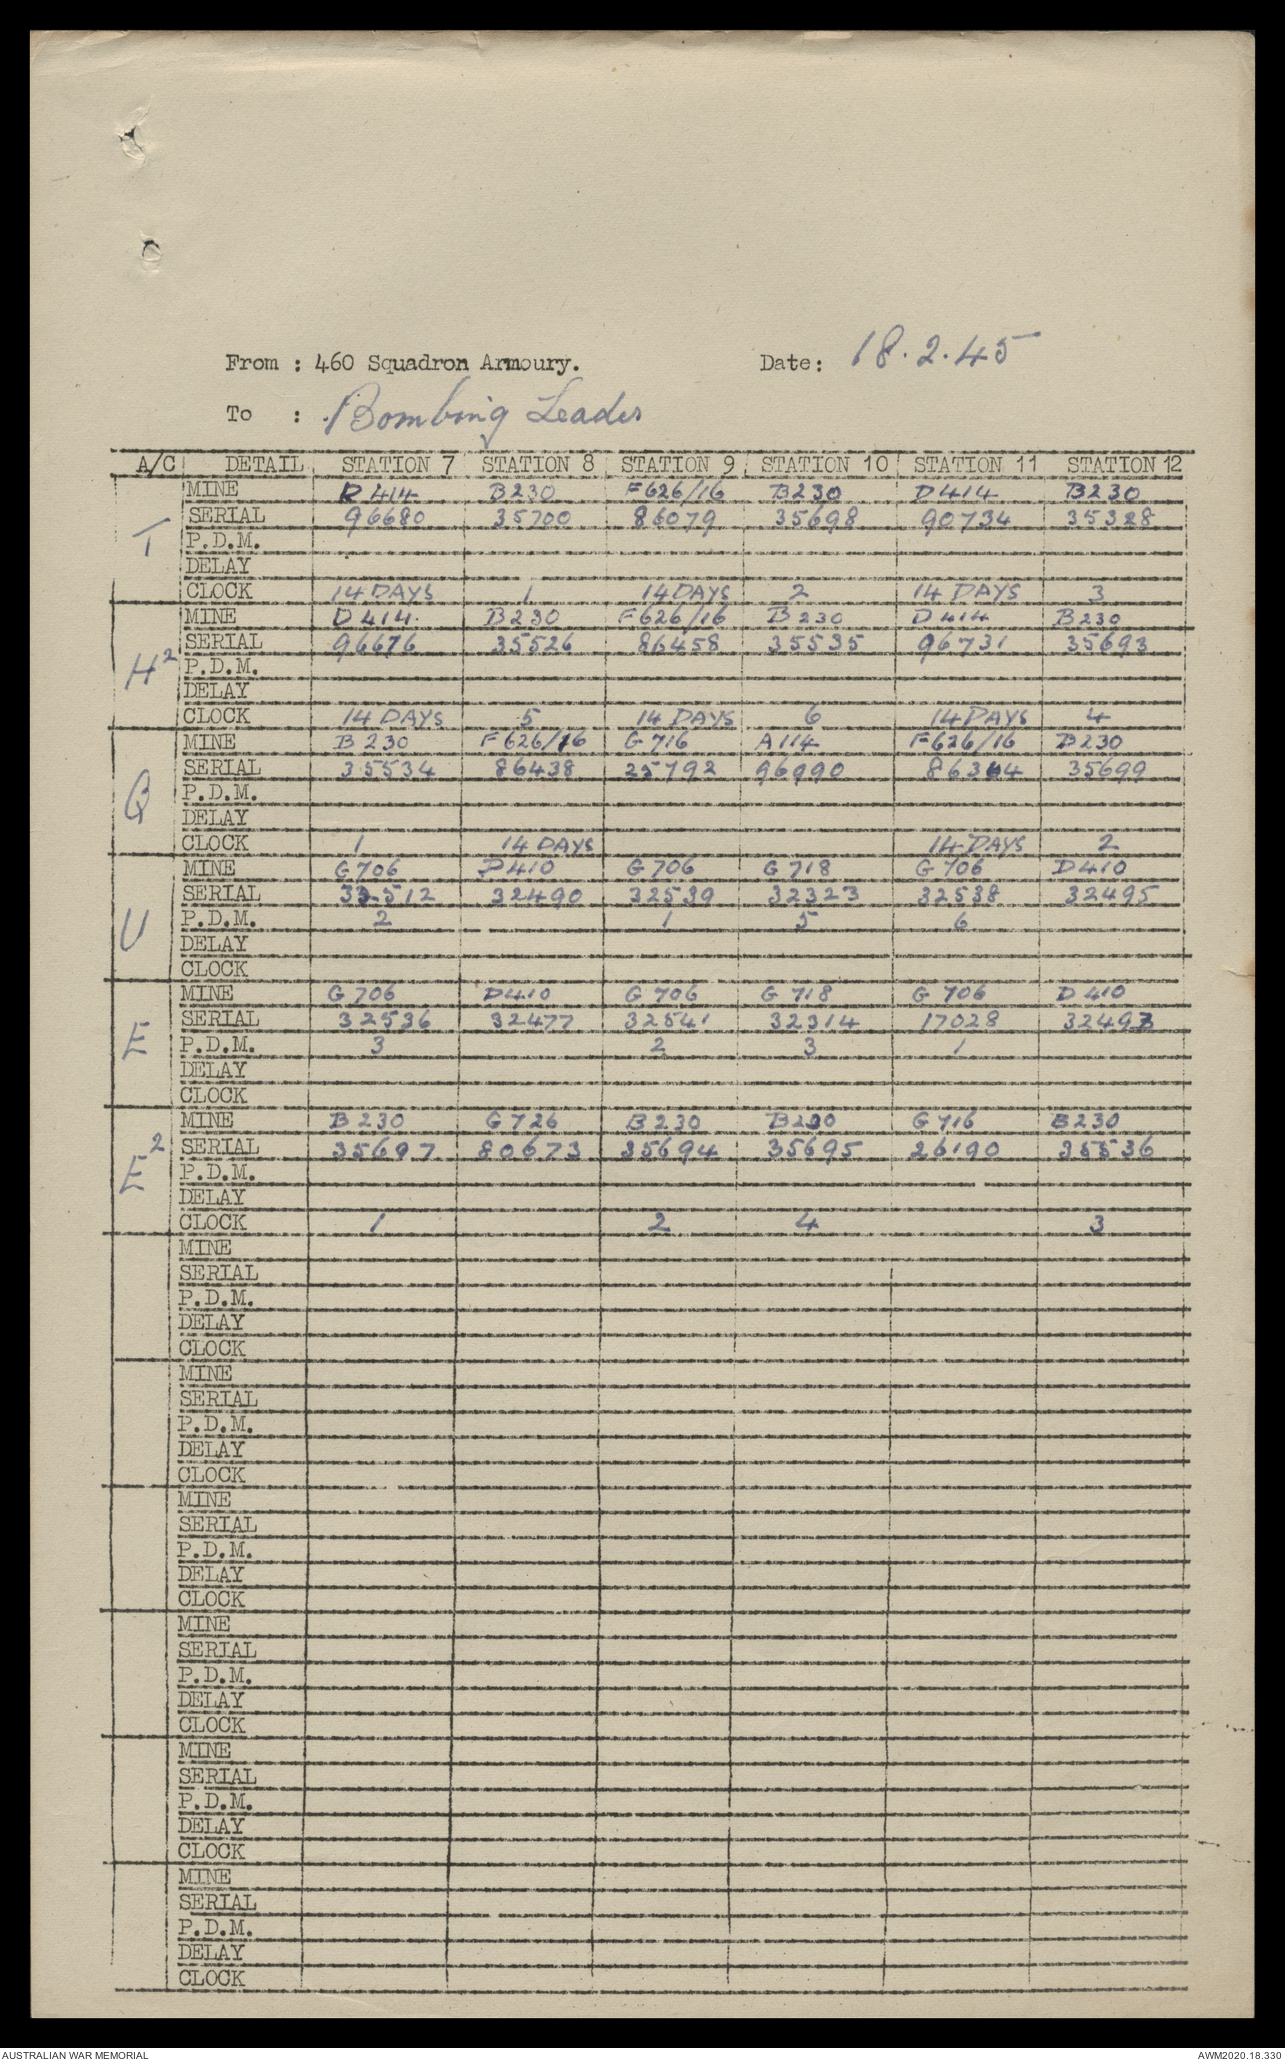 From : 460 Squadron Armoury. Date: 18.2.45
To : Bombing Leader
A/C DETAIL STATION 7 STATION 8 STATION 9 STATION 10 STATION 11 STATION 12
T MINE D414 B230 F626/16 B230 D414 B230
SERIAL 96680 35700 86079 35698 90734 35328
P.D.M.
DELAY
CLOCK 14 DAYS 1 14 DAYS 2 14 DAYS 3
H² MINE D414 B230 F626/16 B230 D414 B230
SERIAL 96676 35526 86458 35535 96731 35693
P.D.M.
DELAY
CLOCK 14 DAYS 5 14 DAYS 6 14 DAYS 4
Q MINE B230 F626/16 G716 A114 F626/16 B230
SERIAL 35534 86438 25792 96990 86344 35699
P.D.M.
DELAY
CLOCK 1 14 DAYS 14 DAYS 2
U MINE G706 D410 G706 G718 G706 D410
SERIAL 32512 32490 32539 32323 32538 32495
P.D.M. 2 1 5 6
DELAY
CLOCK
E MINE G706 D410 G706 G718 G706 D410
SERIAL 32536 32477 32541 32314 17028 32493
P.D.M. 3 2 3 1
DELAY
CLOCK
E² MINE B230 G726 B230 B230 G716 B230
SERIAL 35697 80673 35694 35695 26190 35536
P.D.M.
DELAY
CLOCK 1 2 4 3
MINE
SERIAL
P.D.M.
DELAY
CLOCK
MINE
SERIAL
P.D.M.
DELAY
CLOCK
MINE
SERIAL
P.D.M.
DELAY
CLOCK
MINE
SERIAL
P.D.M.
DELAY
CLOCK
MINE
SERIAL
P.D.M.
DELAY
CLOCK
MINE
SERIAL
P.D.M.
DELAY
CLOCK
AUSTRALIAN WAR MEMORIAL AWM2020.18.330